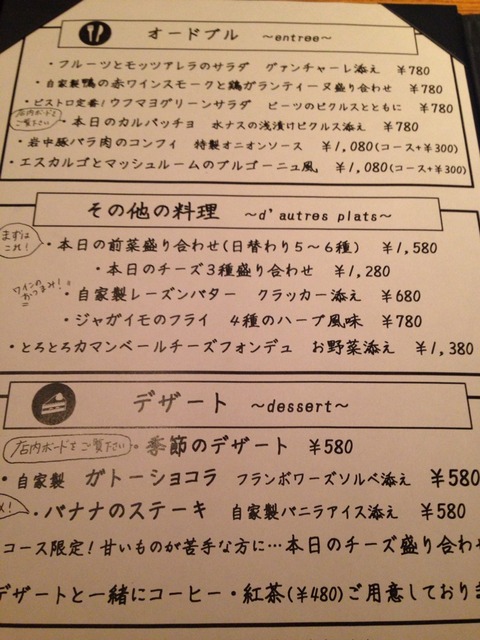 オードブル ～entree～
・フルーツとモッツアレラのサラダ グァンチャーレ添え ￥780
・自家製鴨の赤ワインスモークと鶏ガランティーヌ盛り合わせ ￥780
・ビストロ定番！ウフマヨグリーンサラダ ビーツのピクルスとともに ￥780
店内ボードをご覧下さい
・本日のカルパッチョ 水ナスの浅漬けピクルス添え ￥780
・岩中豚バラ肉のコンフィ 特製オニオンソース ￥1,080(コース+￥300)
・エスカルゴとマッシュルームのブルゴーニュ風 ￥1,080(コース+￥300)
その他の料理 ～d'autres plats～
まずはこれ！
・本日の前菜盛り合わせ(日替わり5～6種) ￥1,580
・本日のチーズ3種盛り合わせ ￥1,280
ワインのおつまみ！
・自家製レーズンバター クラッカー添え ￥680
・ジャガイモのフライ 4種のハーブ風味 ￥780
・とろとろカマンベールチーズフォンデュ お野菜添え ￥1,380
デザート ～dessert～
店内ボードをご覧下さい
・季節のデザート ￥580
・自家製 ガトーショコラ フランボワーズソルベ添え ￥580
・バナナのステーキ 自家製バニラアイス添え ￥580
コース限定！甘いものが苦手な方に…本日のチーズ盛り合わせ
デザートと一緒にコーヒー・紅茶(￥480)ご用意しており